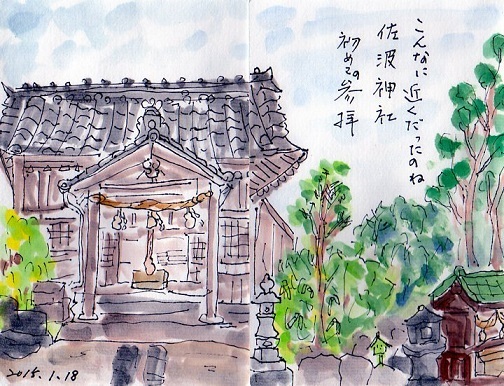 こんなに近くだったのね
佐波神社
初めての参拝
2015.1.18